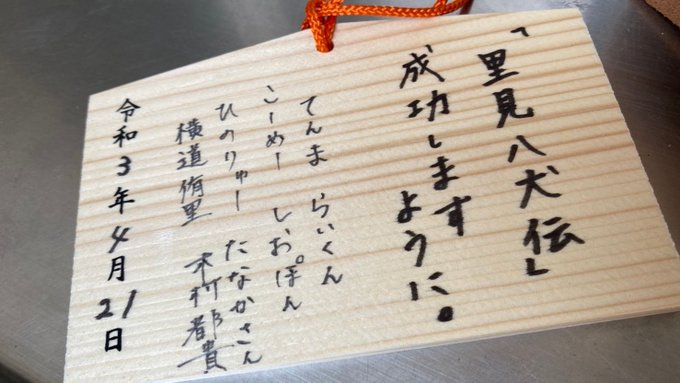 「里見八犬伝」
成功します
ように。
てんま らいくん
こーめー しおぽん
ひのりゅー たなかさん
横道侑里 木村都貴
令和3年4月21日